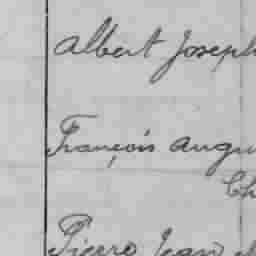 Albert Joseph
François Augu
Ch
Pierre Jean